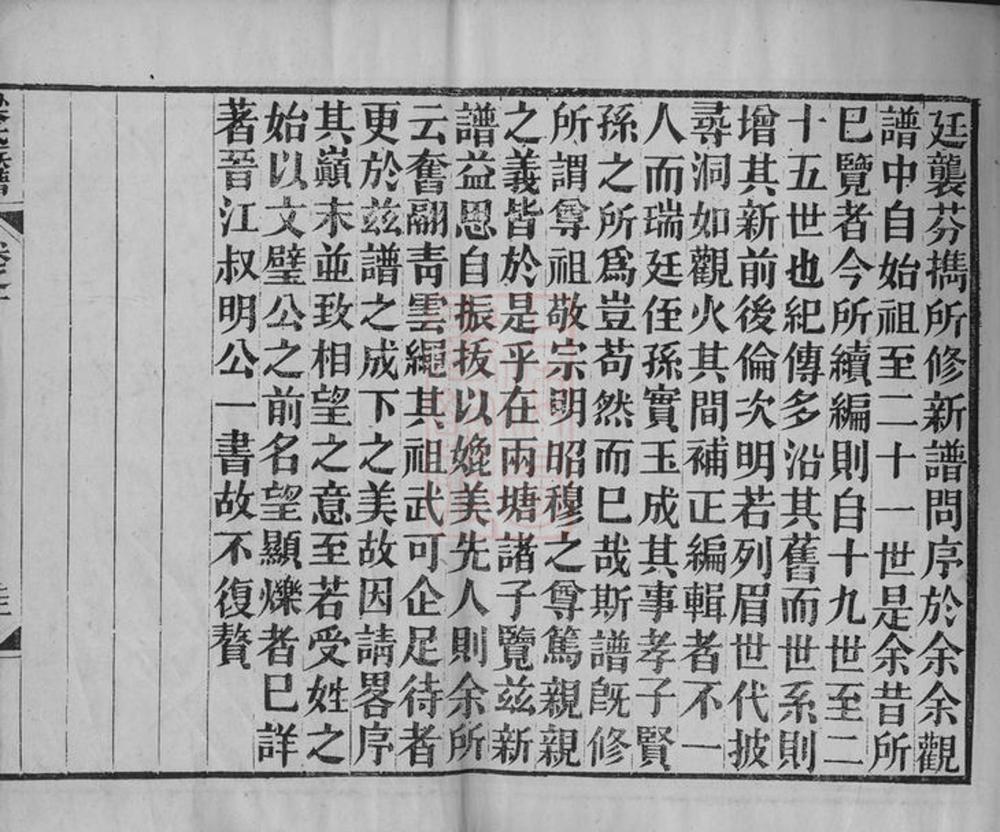 廷襲芬攜所修新譜問序於余余觀
譜中自始祖至二十一世是余昔所
巳覽者今所續編則自十九世至二
十五世也紀傳多沿其舊而世系則
增其新前後倫次明若列眉世代披
尋洞如觀火其間補正編輯者不一
人而瑞廷侄孫實玉成其事孝子賢
孫之所爲豈苟然而巳哉斯譜旣修
所謂尊祖敬宗明昭穆之尊篤親親
之義皆於是乎在兩塘諸子覽茲新
譜益思自振拔以媲美先人則余所
云奮翮青雲繩其祖武可企足待者
更於茲譜之成下之美故因請畧序
其巔末並致相望之意至若受姓之
始以文璧公之前名望顯爍者巳詳
著晉江叔明公一書故不復贅